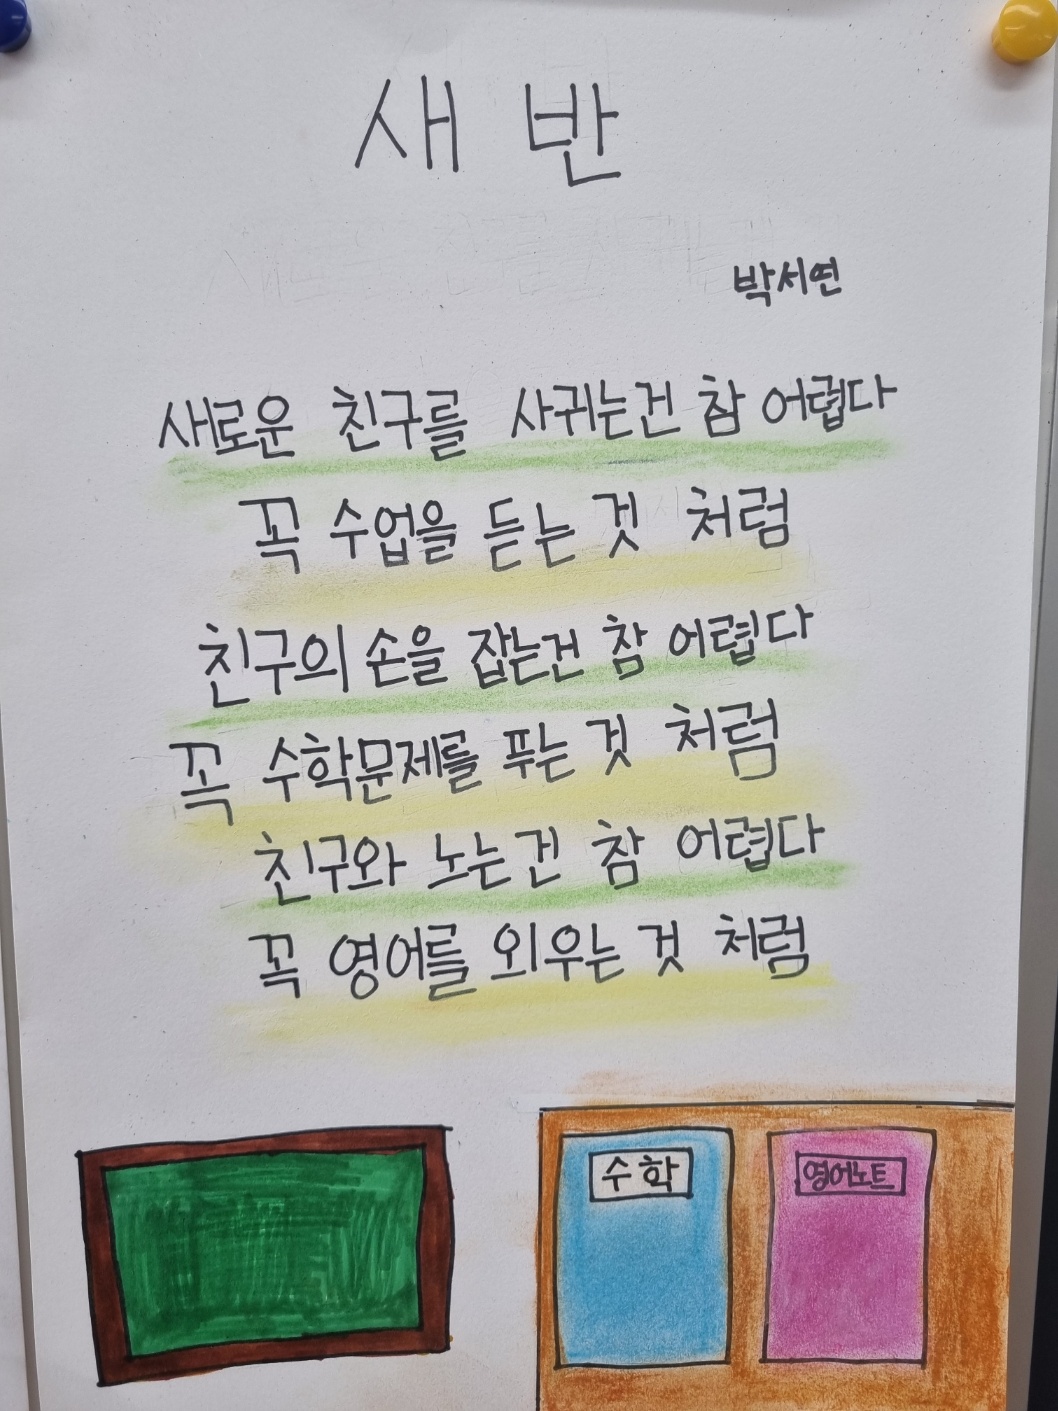 새 반
박서연
새로운 친구를 사귀는건 참 어렵다
꼭 수업을 듣는 것 처럼
친구의 손을 잡는건 참 어렵다
꼭 수학문제를 푸는 것 처럼
친구와 노는건 참 어렵다
꼭 영어를 외우는 것 처럼
수학
영어노트